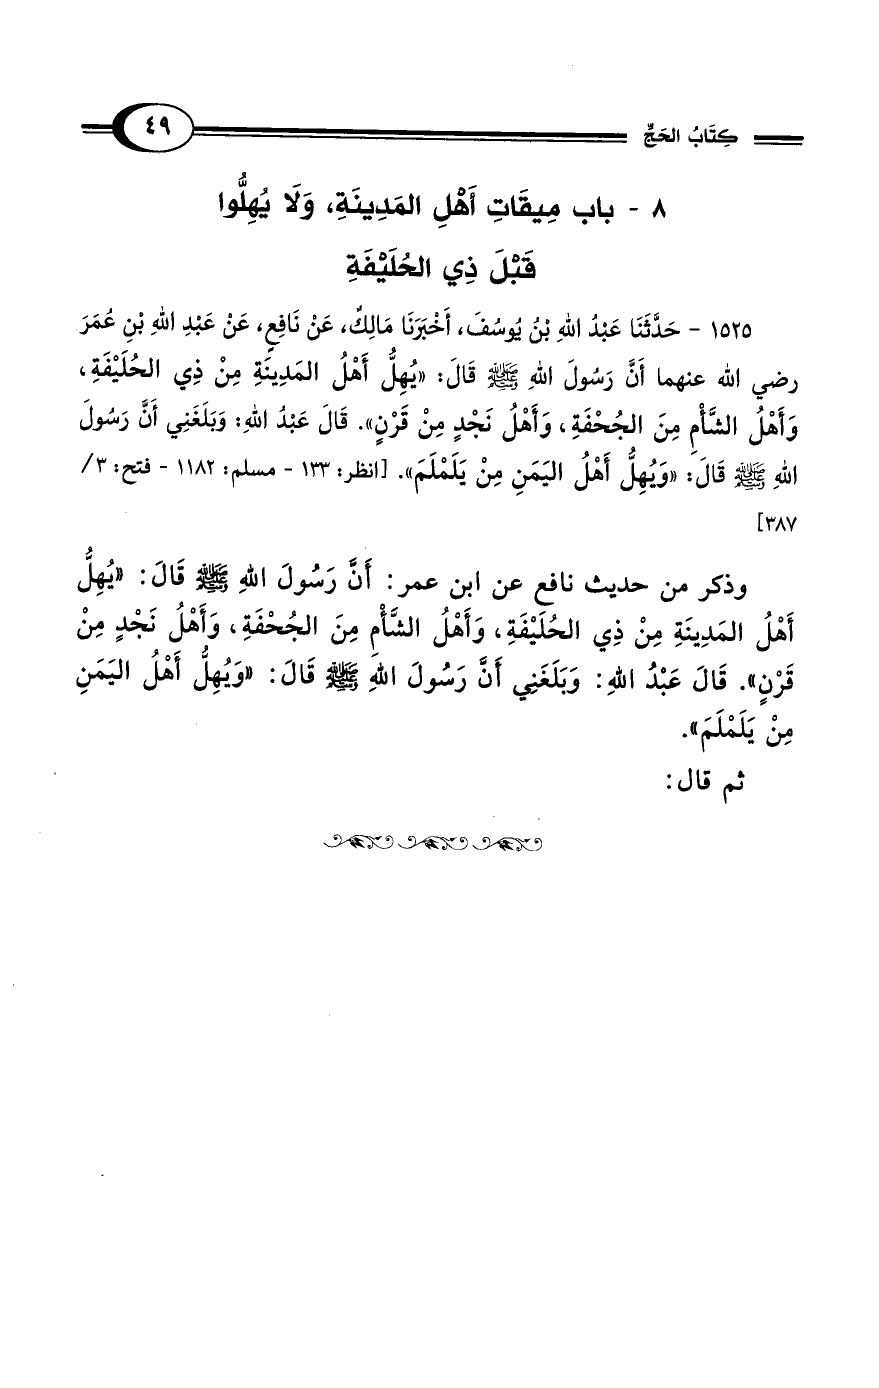 كِتَابُ الحَجِّ ٤٩
٨ - باب مِيقَاتِ أَهْلِ المَدِينَةِ، وَلَا يُهِلُّوا
قَبْلَ ذِي الحُلَيْفَةِ
١٥٢٥ - حَدَّثَنَا عَبْدُ اللهِ بْنُ يُوسُفَ، أَخْبَرَنَا مَالِكٌ، عَنْ نَافِعٍ، عَنْ عَبْدِ اللهِ بْنِ عُمَرَ
رضي الله عنهما أَنَّ رَسُولَ اللهِ ﷺ قَالَ: «يُهِلُّ أَهْلُ المَدِينَةِ مِنْ ذِي الحُلَيْفَةِ،
وَأَهْلُ الشَّأْمِ مِنَ الجُحْفَةِ، وَأَهْلُ نَجْدٍ مِنْ قَرْنٍ». قَالَ عَبْدُ اللهِ: وَبَلَغَنِي أَنَّ رَسُولَ
اللهِ ﷺ قَالَ: «وَيُهِلُّ أَهْلُ اليَمَنِ مِنْ يَلَمْلَمَ». [انظر: ١٣٣ - مسلم: ١١٨٢ - فتح: ٣/
٣٨٧]
وذكر من حديث نافع عن ابن عمر: أَنَّ رَسُولَ اللهِ ﷺ قَالَ: «يُهِلُّ
أَهْلُ المَدِينَةِ مِنْ ذِي الحُلَيْفَةِ، وَأَهْلُ الشَّأْمِ مِنَ الجُحْفَةِ، وَأَهْلُ نَجْدٍ مِنْ
قَرْنٍ». قَالَ عَبْدُ اللهِ: وَبَلَغَنِي أَنَّ رَسُولَ اللهِ ﷺ قَالَ: «وَيُهِلُّ أَهْلُ اليَمَنِ
مِنْ يَلَمْلَمَ».
ثم قال: